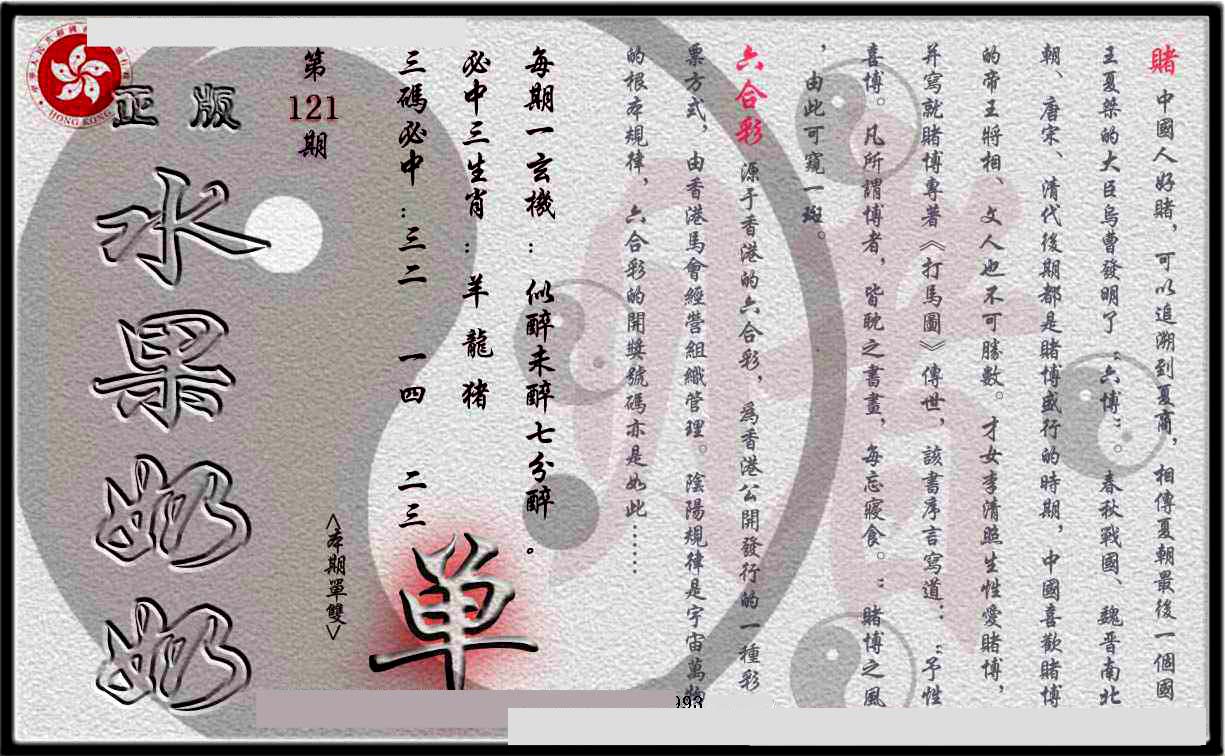 賭 中國人好賭，可以追溯到夏商，相傳夏朝最後一個國
王夏桀的大臣烏曹發明了“六博”。春秋戰國、魏晋南北
朝、唐宋、清代後期都是賭博盛行的時期，中國喜歡賭博
的帝王將相、文人也不可勝數。才女李清照生性愛賭博，
并寫就賭博專著《打馬圖》傳世，該書序言寫道：“予性
喜博。凡所謂博者，皆耽之書畫，每忘寢食。”賭博之風
，由此可窺一斑。
六合彩 源于香港的六合彩，爲香港公開發行的一種彩
票方式，由香港馬會經營組織管理。陰陽規律是宇宙萬物
的根本規律，六合彩的開獎號碼亦是如此……
每期一玄機：似醉未醉七分醉。
必中三生肖：羊 龍 猪
三碼必中：三二 一四 二三
單
<本期單雙>
第
121
期
正版
水果奶奶
HONG KONG
993